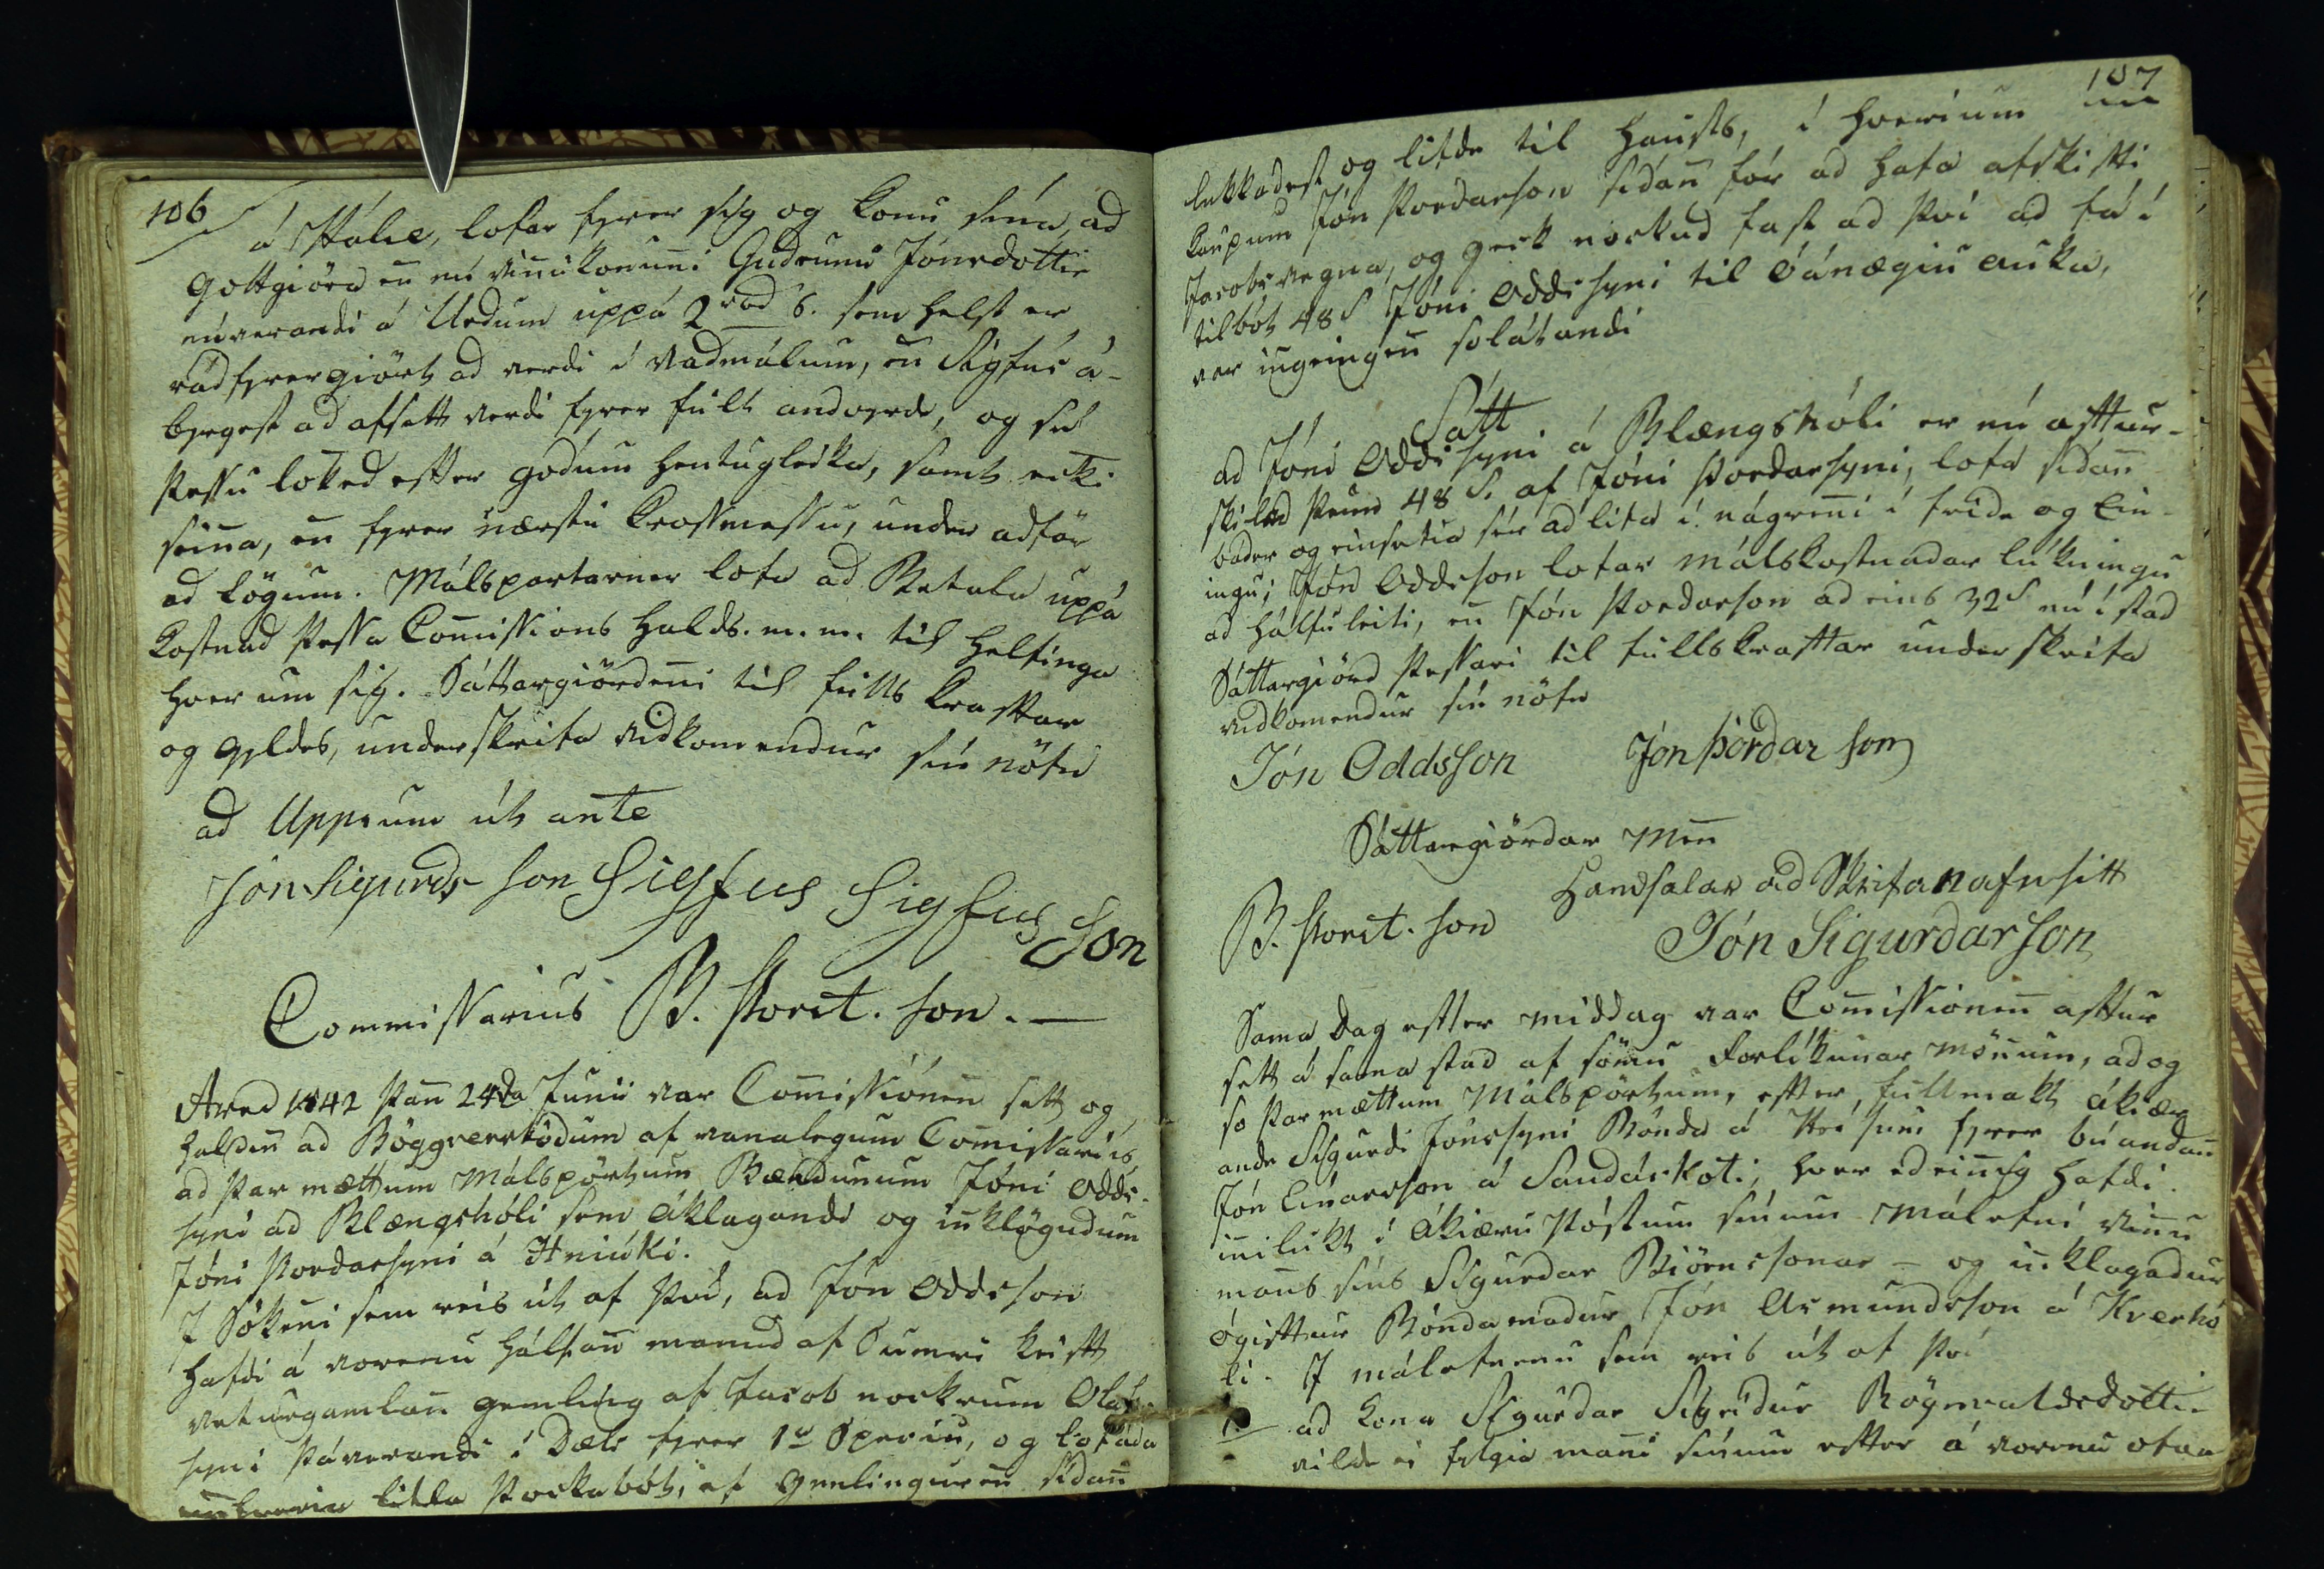 106
á Hálse, lofar fyrer sig og konu sína, ad
gottgiöra en nú vinnukonunni Gudrunu Jónsdottir
núverandi á Urdum uppá 2 rbd S. sem helst er
rádfyrergiört ad verdi í vadmálum, en Sigfús á-
byrgest ad afsett verdi fyrer fullt andvyrde, og sé
þessu loked efter gódum hentugleika, samt ecki
seinna, en fyrer næstu Krossmessu, under adför
ad lögum. Málspartarner lofa ad Betala uppá
kostnad þessa Commissions halds. m. m. til helfinga
hver um sig. Sáttargiördenni til fulls kraftar
og gyldes, underskrifa vidkomendur sín nöfn
ad Uppsum út ante
Jón Sigurdsson Sigfus Sigfus
Son
Commissarius B. Þorst. son. —
Ared 1842 þann 24da Junii var Commissiónen sett og
halden ad Böggverstödum af vanalegum Commissariis
ad þar mættum málspörtum Bændunum Jóni Odds-
syni ad Klængshóli sem áklagandi og innklögudum
Jóni Þordarsyni á Hniúki.
I Sökinni sem reis út af því, ad Jón Oddsson
hafdi á vorenu hálfan manud af Sumri keift
veturgamlan gemling af Jacob nockrum Olafs-
syni þáverandi í Dæli fyrer 1u Speciu, og lofada
litla þockabót, ef gemlinguren sídan
107
lukkadest og lifde til hausts, í hverium
kaupum Jón Þordarson sídan fór ad hafa afskifti
Jacobs vegna, og geck nockud fast ad því ad fá í
tilbót 48 S Jóni Oddssyni til óánægiu auka,
var ingeingen solátandi
Sátt
ad Jóni Oddssyni á Klængshóli er nú aftur-
skilad þeim 48 S. af Jóni Þordarsyni, lofa sídan
báder og einsetia sér ad lifa í nágrenni í fride og Ein-
ingu; Jón Oddsson lofar málskostnadar lúkningu
ad hálfuleiti, en Jón Þordarson ad eins 32 S nú í stad
Sáttargiörd þessari til fullskraftar underskrifa
vidkomendur sín nöfn
Jón Oddsson Jón Þórdarson
Sáttargiördar Menn
Handsalar ad Skrifa nafn sitt
B. Þorst. son Jón Sigurdarson
Sama Dag efter middag var Commissiónen aftur
sett á sama stad af sömu Forlíkunar mönnum, ad og
so þar mættum Málspörtum, efter, fullmakt ákiær
ande Sigurdi Jónssyni Bónda á fyrer búandan
Jón Einarsson á Saudárkoti, hver ad einnig hafdi
innilukt í ákiæru póstum sínum málefni vinnu
manns síns Sigurdar Biörnssonar - og innklagadur
ógiftur Bóndamadur Jón Asmundsson á Hverhó
li. I málefnenu sem reis út af því
1. ad kona Sigurdar Sigridur Rögnvaldsdotter
vilde ei fylgia manni sínum efter á vorenu ofan